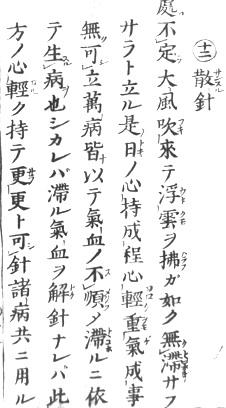 ㊉二散針
処不定大風吹来テ浮雲ヲ拂ガ如ク無滞サフ
サラト立ル是日ノ心持成程心輕重氣成事
無可立萬病皆以テ氣血ノ不順メ滞ルニ依
テ生病也シカレバ滞ル氣血ヲ解針ナレバ此
方ノ心輕ク持テ更更ト可針諸病共ニ用ル